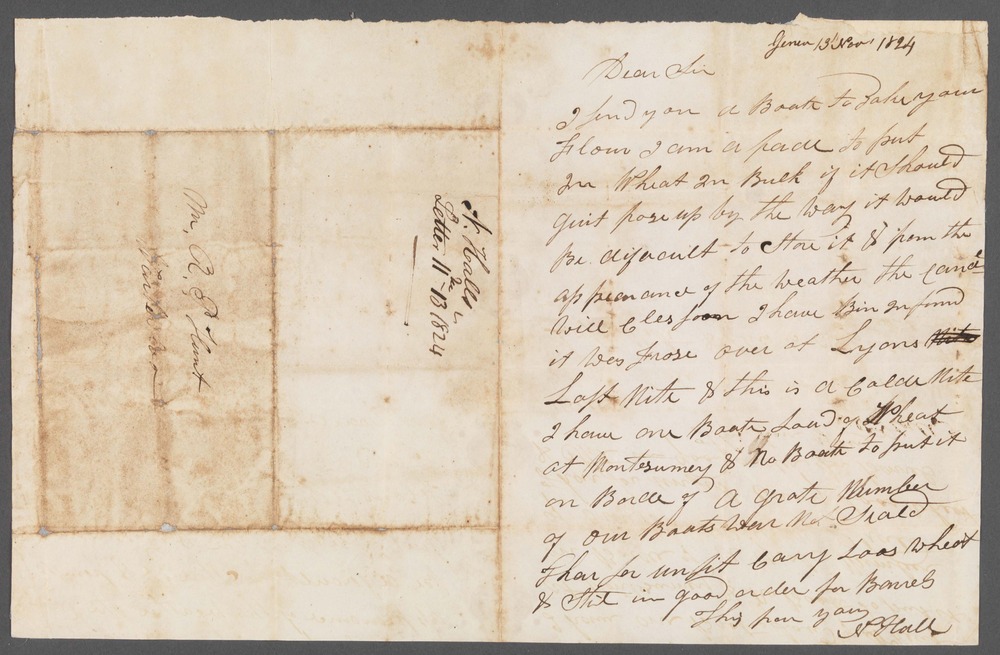 Mr. R. P. Hunt
Waterloo
N. Halls
Letter 11th - 13 1824
Genev 13 Novr 1824
Dear Sir
I send you a Boate to Take your
Flour I am a frade to put
In Wheat In Bulk if it Should
git froze up by the way it would
Be difacult to Store it & from the
appearance of the weather the Canal
will Cles soon I have Bin Informd
it Was Froze over at Lyons
Last Nite & this is a Colde Nite
I have one Boate Load of Wheat
at Montesumey & No Boate to put it
on Borde of A grate Number
of our Boats War Not Seald
Thar for unfit Carry Loos wheat
& Stil in good order for Barrels
This from your
N Hall